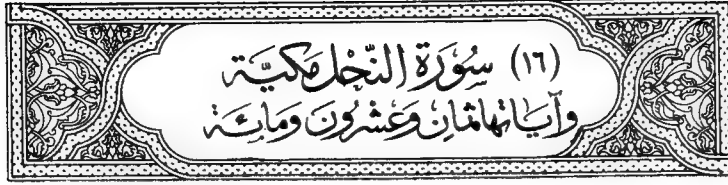 (١٦) سُورَة النَّحْل مَكيَّة
وآيَاتهَا ثمَانٍ وَعشْرُونَ وَمَائَة